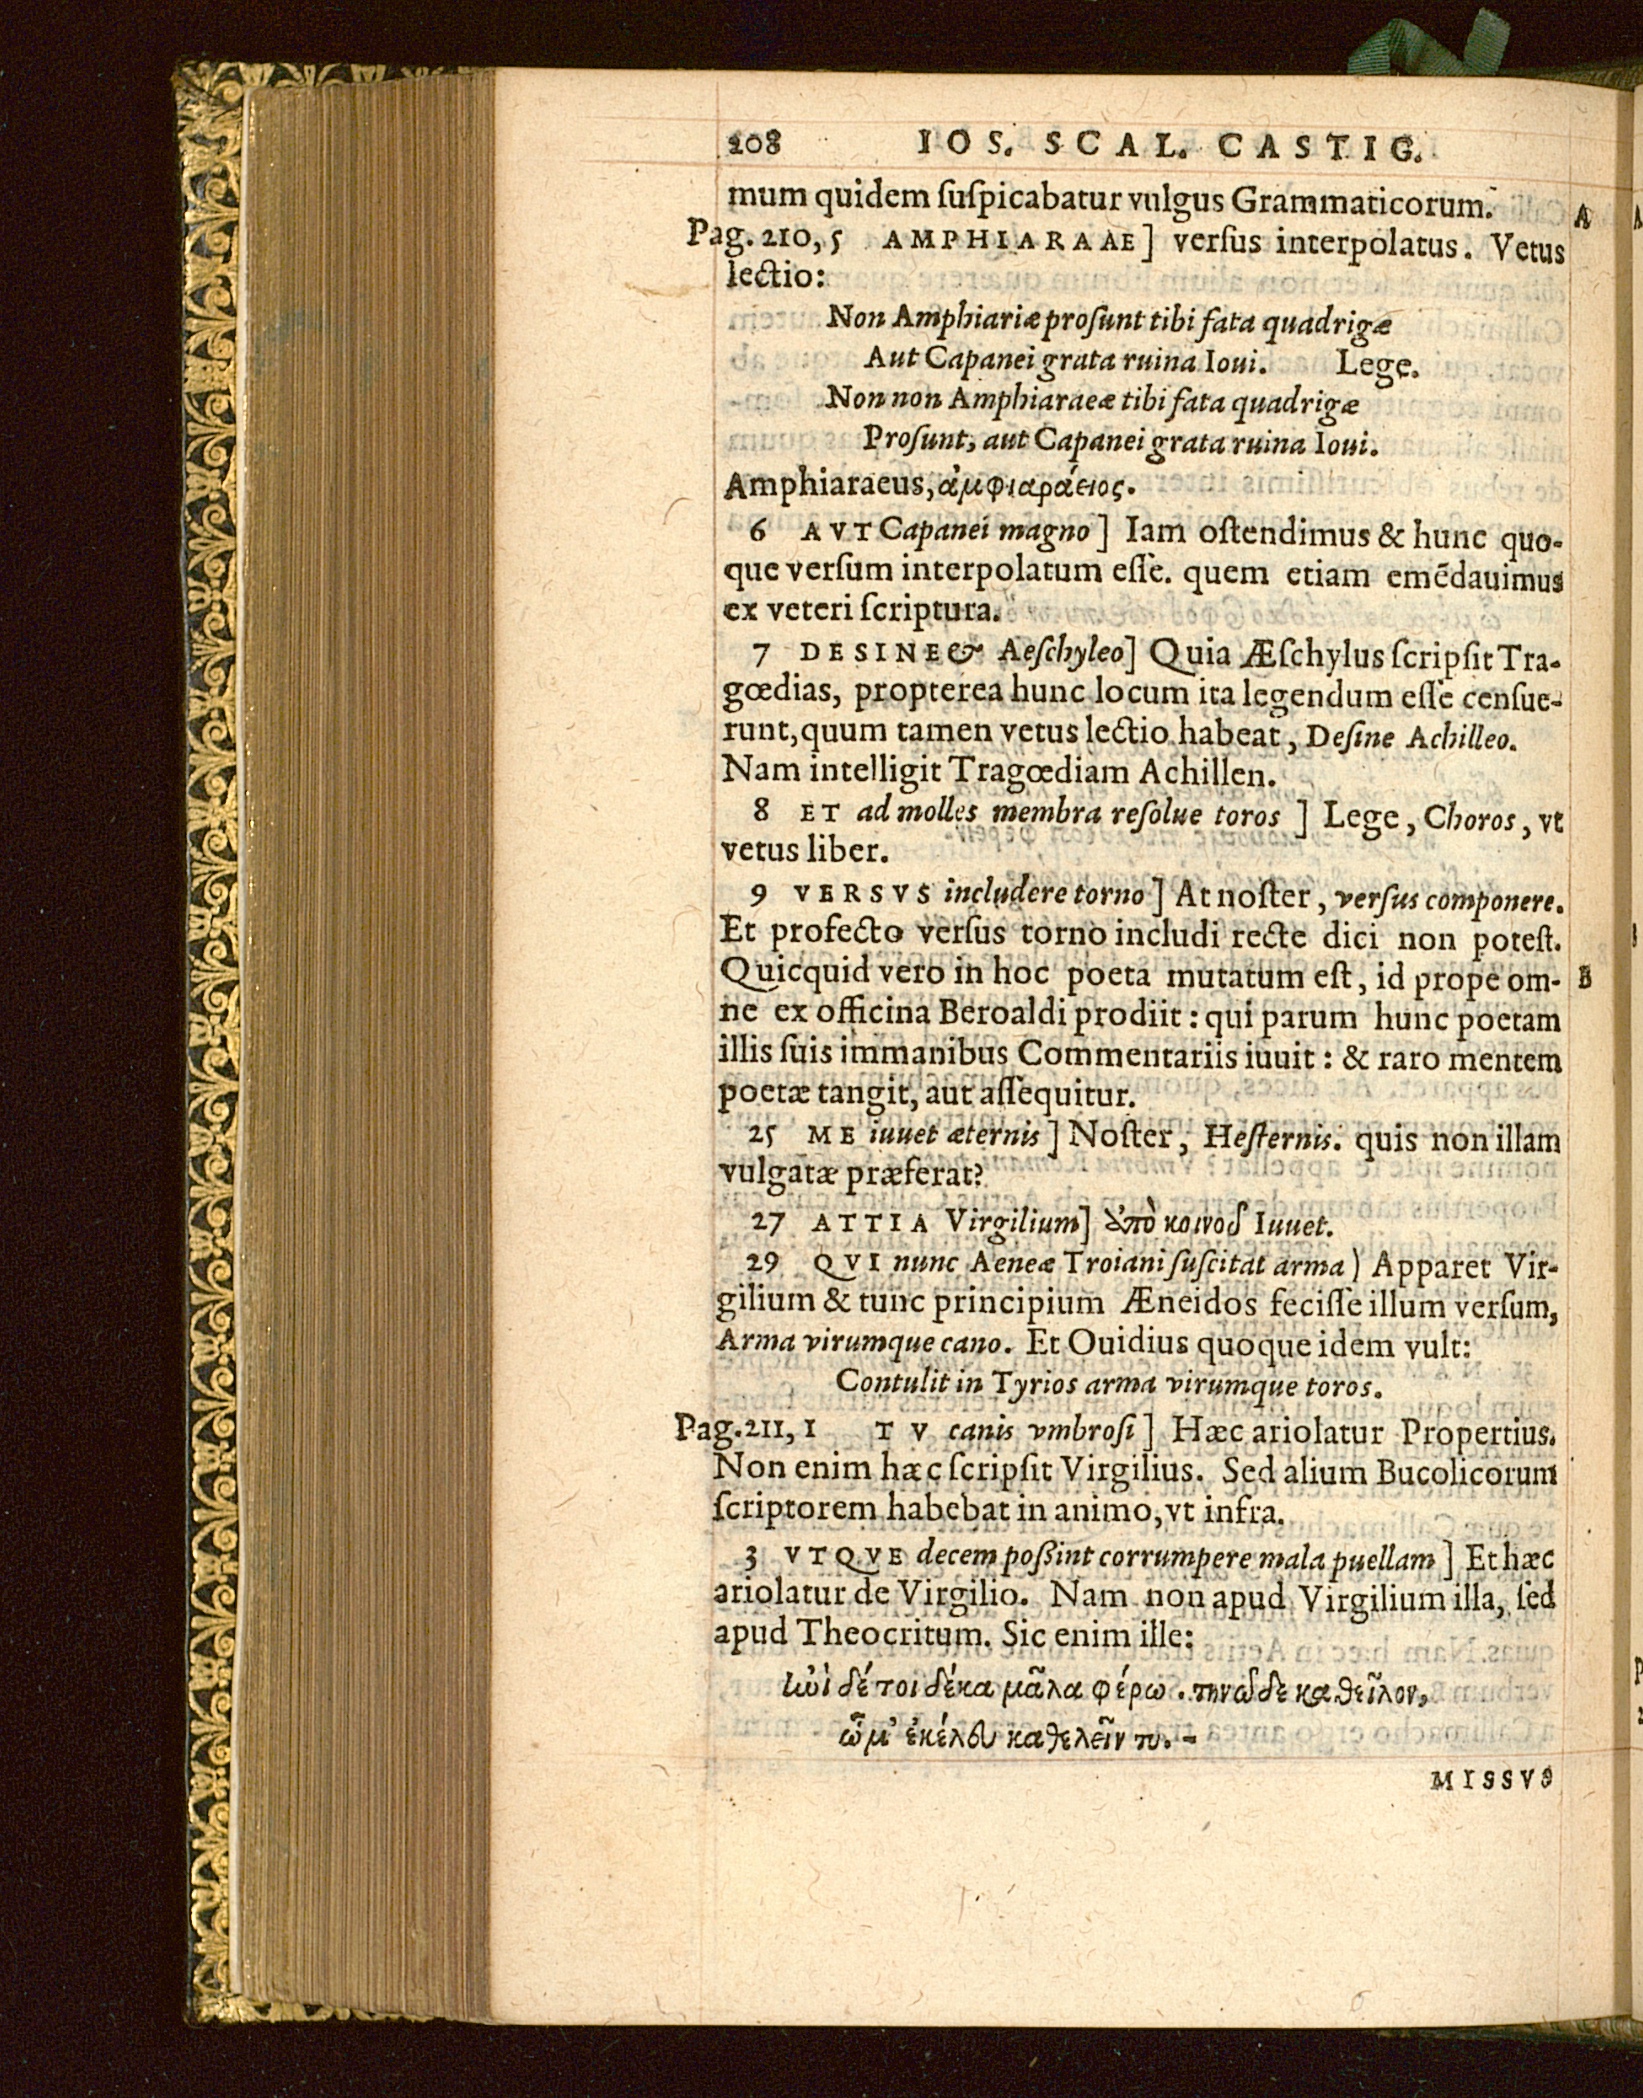 208 IOS. SCAL. CASTIG.
mum quidem ſuſpicabatur vulgus Grammaticorum.
A
Pag. 210, 5 AMPHIARAAE] verſus interpolatus. Vetus
lectio:
Non Amphiariæ proſunt tibi fata quadrigæ
Aut Capanei grata ruina Ioui. Lege.
Non non Amphiaraeæ tibi fata quadrigæ
Proſunt, aut Capanei grata ruina Ioui.
Amphiaraeus, ἀμφιαράειος.
6 AVT Capanei magno] Iam oſtendimus & hunc quo-
que verſum interpolatum eſſe. quem etiam emēdauimus
ex veteri ſcriptura.
7 DESINE & Aeſchyleo] Quia Æſchylus ſcripſit Tra-
gœdias, propterea hunc locum ita legendum eſſe cenſue-
runt, quum tamen vetus lectio habeat, Deſine Achilleo.
Nam intelligit Tragœdiam Achillen.
8 ET ad molles membra reſolue toros] Lege, Choros, vt
vetus liber.
9 VERSVS includere torno] At noſter, verſus componere.
Et profecto verſus torno includi recte dici non poteſt.
Quicquid vero in hoc poeta mutatum eſt, id prope om-
B
ne ex officina Beroaldi prodiit: qui parum hunc poetam
illis ſuis immanibus Commentariis iuuit: & raro mentem
poetæ tangit, aut aſſequitur.
25 ME iuuet æternis] Noſter, Heſternis. quis non illam
vulgatæ præferat?
27 ATTIA Virgilium] ἀπὸ κοινοῦ Iuuet.
29 QVI nunc Aeneæ Troiani ſuſcitat arma) Apparet Vir-
gilium & tunc principium Æneidos feciſſe illum verſum,
Arma virumque cano. Et Ouidius quoque idem vult:
Contulit in Tyrios arma virumque toros.
Pag. 211, 1 TV canis vmbroſi] Hæc ariolatur Propertius.
Non enim hæc ſcripſit Virgilius. Sed alium Bucolicorum
ſcriptorem habebat in animo, vt infra.
3 VTQVE decem poßint corrumpere mala puellam] Et hæc
ariolatur de Virgilio. Nam non apud Virgilium illa, ſed
apud Theocritum. Sic enim ille:
ἰωὶ δέ τοι δέκα μᾶλα φέρω. τηνῶδε καθεῖλον,
ὧ μ' ἐκέλευ καθελεῖν τυ. -
MISSVS